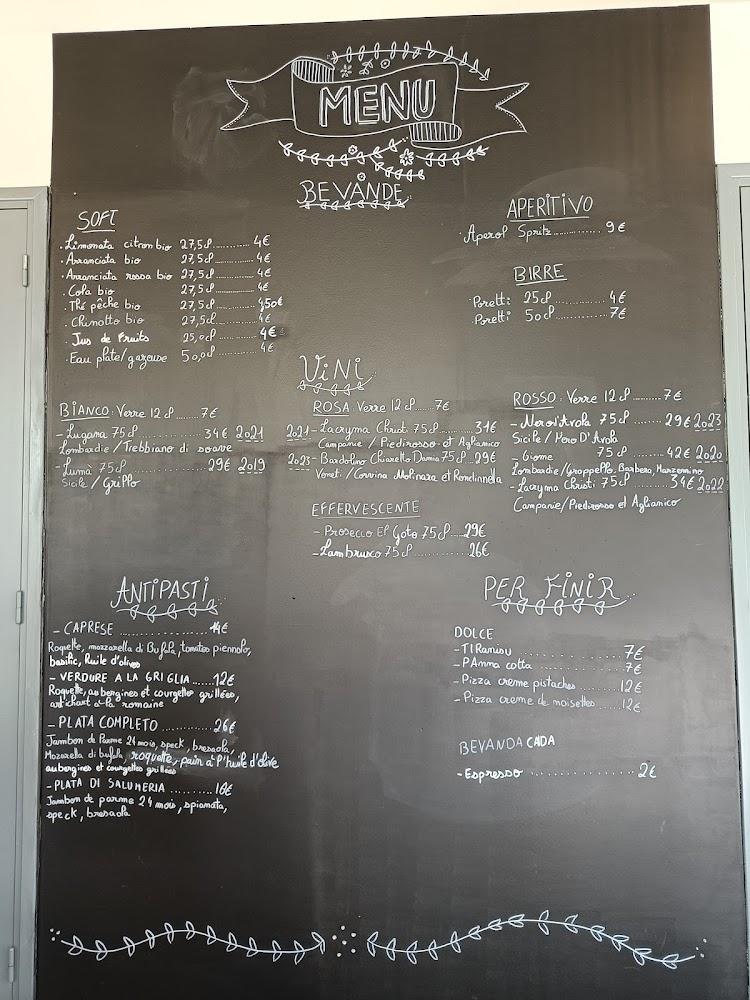 MENU
BEVANDE
SOFT
. Limonata citron bio 27,5cl ......... 4€
. Arranciata bio 27,5cl ......... 4€
. Arranciata rossa bio 27,5cl ......... 4€
. Cola bio 27,5cl ......... 4€
. Thé pêche bio 27,5cl ......... 4,50€
. Chinotto bio 27,5cl ......... 4€
. Jus de fruits 25,0cl ......... 4€
. Eau plate/gazeuse 50,0cl ......... 4€
APERITIVO
. Aperol Spritz ............ 9€
BIRRE
. Poretti 25cl ............ 4€
. Poretti 50cl ............ 7€
ViNi
BIANCO . Verre 12cl ..... 7€
- Lugana 75cl ............ 34€ 2021
Lombardie / Trebbiano di soave
- Lumà 75cl ............ 29€ 2019
Sicile / Grillo
ROSA Verre 12cl ..... 7€
2021 - Lacryma Christ 75cl ......... 31€
Campanie / Piedirosso et Aglianico
2023 - Bardolino Chiaretto Damia 75cl ... 29€
Veneti / Corvina Molinara et Rondinnella
EFFERVESCENTE
- Prosecco El Goto 75cl .... 29€
- Lambrusco 75cl ............ 26€
ROSSO . Verre 12cl ......... 7€
- Nero d'Avola 75cl ......... 29€ 2023
Sicile / Nero D'Avola
- Giome 75cl ......... 42€ 2020
Lombardie/Groppello, Barbera, Marzemino
- Lacryma Christi 75cl ......... 34€ 2022
Campanie/Piedirosso et Aglianico
ANTIPASTI
- CAPRESE .................. 14€
Roquette, mozzarella di Bufala, tomates piennolo,
basilic, huile d'olives
- VERDURE A LA GRIGLIA ..... 12€
Roquette, aubergines et courgettes grillées,
artichaut à la romaine
- PLATA COMPLETO ............ 26€
Jambon de Parme 24 mois, speck, bresaola,
Mozarella di bufala, roquette, pain à l'huile d'olive
aubergines et courgettes grillées
- PLATA DI SALUMERIA .......... 16€
Jambon de parme 24 mois, spianata,
speck, bresaola
PER FINIR
DOLCE
- TIRamisu .................. 7€
- PAnna cotta .................. 7€
- Pizza creme pistaches ......... 12€
- Pizza creme de noisettes ...... 12€
BEVANDA CADA
- Espresso .................. 2€